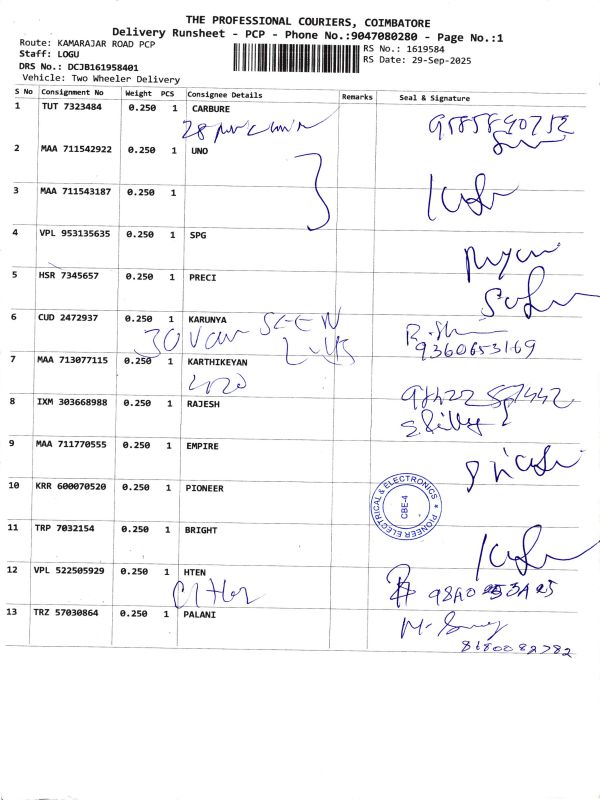 THE PROFESSIONAL COURIERS, COIMBATORE
Delivery Runsheet - PCP - Phone No.:9047080280 - Page No.:1
Route: KAMARAJAR ROAD PCP
RS No.: 1619584
Staff: LOGU
RS Date: 29-Sep-2025
DRS No.: DCJB161958401
Vehicle: Two Wheeler Delivery
S No Consignment No Weight PCS Consignee Details Remarks Seal & Signature
1 TUT 7323484 0.250 1 CARBURE
28
2 MAA 711542922 0.250 1 UNO
3 MAA 711543187 0.250 1
4 VPL 953135635 0.250 1 SPG
5 HSR 7345657 0.250 1 PRECI
6 CUD 2472937 0.250 1 KARUNYA
30
9360653169
7 MAA 713077115 0.250 1 KARTHIKEYAN
8 IXM 303668988 0.250 1 RAJESH
9 MAA 711770555 0.250 1 EMPIRE
10 KRR 600070520 0.250 1 PIONEER
PIONEER ELECTRICAL & ELECTRONICS
CBE-4
11 TRP 7032154 0.250 1 BRIGHT
12 VPL 522505929 0.250 1 HTEN
13 TRZ 57030864 0.250 1 PALANI
8680082782